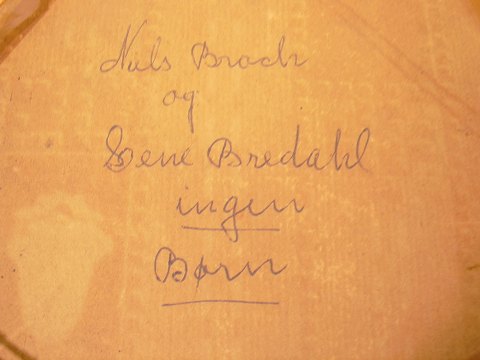 Niels Brock
og
Lene Bredahl
ingen
Børn